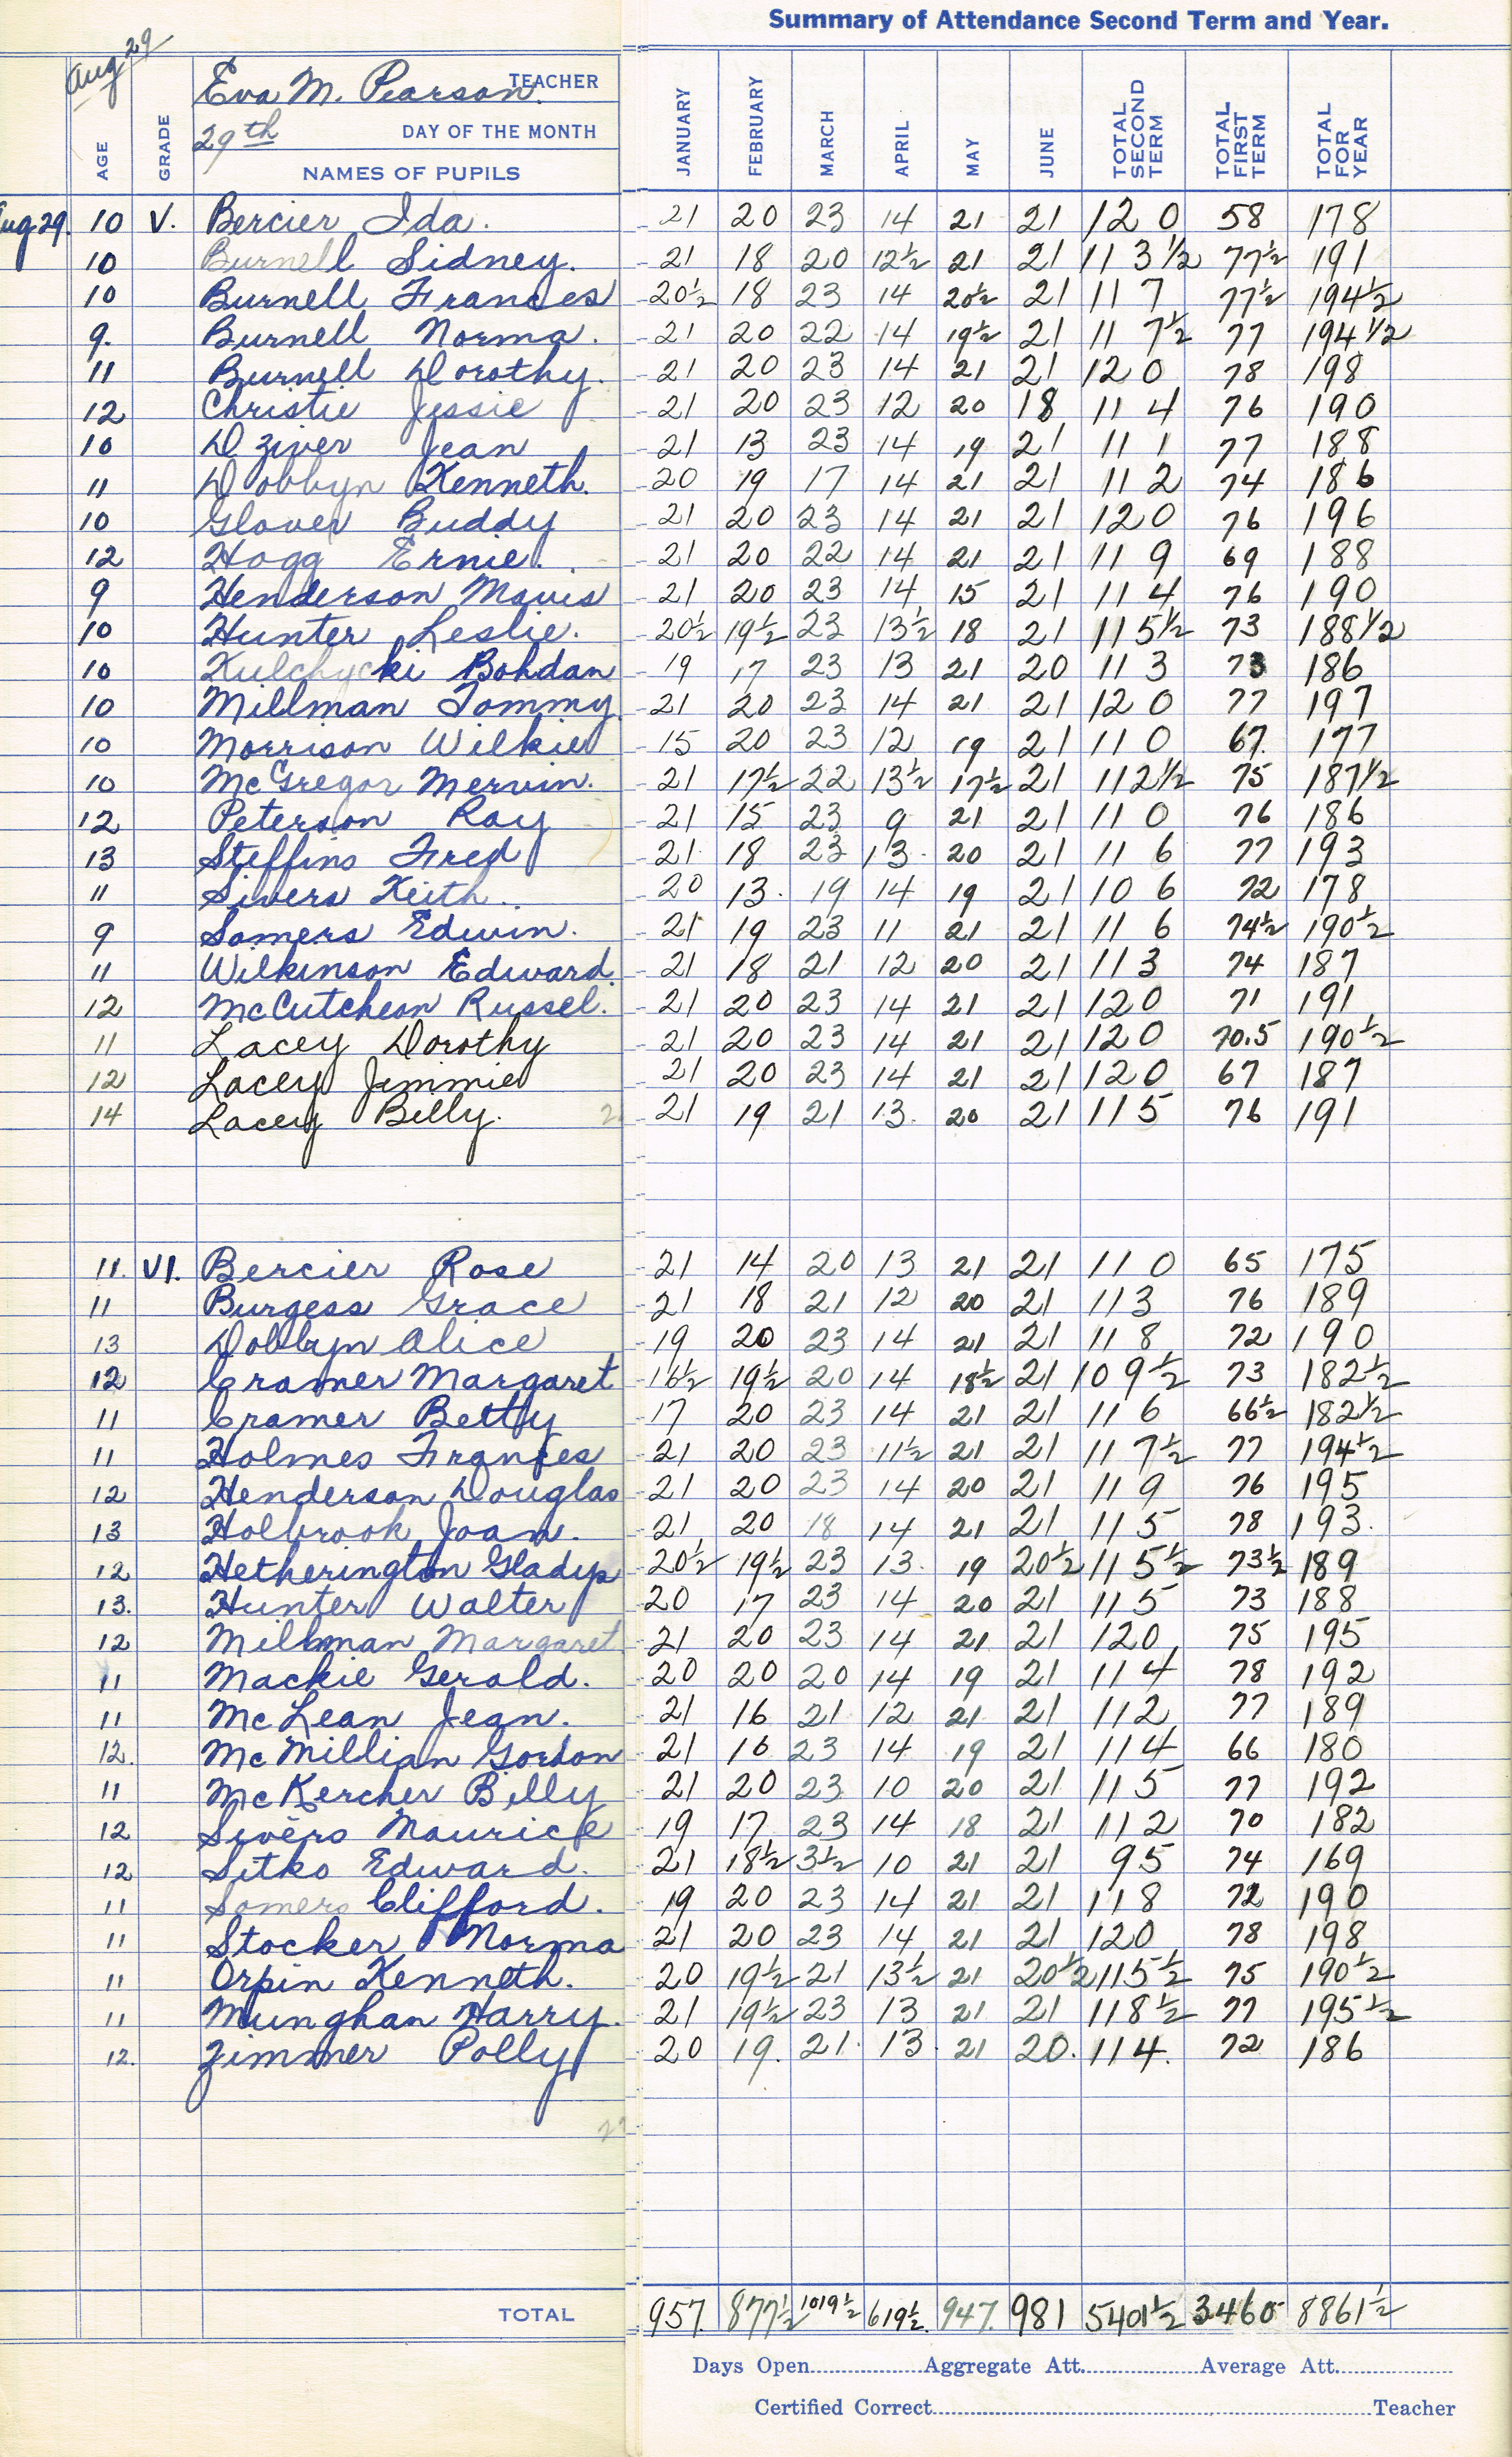 Summary of Attendance Second Term and Year.
Aug 29
Eva M. Pearson. TEACHER
29th DAY OF THE MONTH
AGE GRADE NAMES OF PUPILS JANUARY FEBRUARY MARCH APRIL MAY JUNE TOTAL SECOND TERM TOTAL FIRST TERM TOTAL FOR YEAR
Aug 29. 10 V. Bercier Ida. 21 20 23 14 21 21 120 58 178
10 Burnell Sidney. 21 18 20 12½ 21 21 113½ 77½ 191
10 Burnell Frances 20½ 18 23 14 20½ 21 117 77½ 194½
9. Burnell Norma. 21 20 22 14 19½ 21 117½ 77 194½
11 Burnell Dorothy. 21 20 23 14 21 21 120 78 198
12 Christie Jessie 21 20 23 12 20 18 114 76 190
10 Dziver Jean 21 13 23 14 19 21 111 77 188
11 Dobbyn Kenneth. 20 19 17 14 21 21 112 74 186
10 Glover Buddy 21 20 23 14 21 21 120 76 196
12 Hogg Ernie. 21 20 22 14 21 21 119 69 188
9 Henderson Mavis 21 20 23 14 15 21 114 76 190
10 Hunter Leslie. 20½ 19½ 23 13½ 18 21 115½ 73 188½
10 Kulchycki Bohdan 19 17 23 13 21 20 113 73 186
10 Millman Tommy. 21 20 23 14 21 21 120 77 197
10 Morrison Wilkie 15 20 23 12 19 21 110 67. 177
10 McGregor Mervin. 21 17½ 22 13½ 17½ 21 112½ 75 187½
12 Peterson Ray 21 15 23 9 21 21 110 76 186
13 Steffins Fred 21 18 23 13. 20 21 116 77 193
11 Sivers Keith.. 20 13. 19 14 19 21 106 72 178
9 Somers Edwin. 21 19 23 11 21 21 116 74½ 190½
11 Wilkinson Edward. 21 18 21 12 20 21 113 74 187
12 McCutcheon Russel. 21 20 23 14 21 21 120 71 191
11 Lacey Dorothy 21 20 23 14 21 21 120 70.5 190½
12 Lacey Jimmie 21 20 23 14 21 21 120 67 187
14 Lacey Billy. 21 19 21 13. 20 21 115 76 191
11. VI. Bercier Rose 21 14 20 13 21 21 110 65 175
11 Burgess Grace 21 18 21 12 20 21 113 76 189
13 Dobbyn Alice 19 20 23 14 21 21 118 72 190
12 Cramer Margaret 16½ 19½ 20 14 18½ 21 109½ 73 182½
11 Cramer Betty 17 20 23 14 21 21 116 66½ 182½
11 Holmes Frances 21 20 23 11½ 21 21 117½ 77 194½
12 Henderson Douglas 21 20 23 14 20 21 119 76 195
13 Holbrook Joan. 21 20 18 14 21 21 115 78 193.
12 Hetherington Gladys 20½ 19½ 23 13 19 20½ 115½ 73½ 189
13. Hunter Walter 20 17 23 14 20 21 115 73 188
12 Millman Margaret 21 20 23 14 21 21 120 75 195
11 Mackie Gerald. 20 20 20 14 19 21 114 78 192
11 McLean Jean. 21 16 21 12 21 21 112 77 189
12. McMillian Gordon 21 16 23 14 19 21 114 66 180
11 McKercher Billy 21 20 23 10 20 21 115 77 192
12 Sivers Maurice 19 17 23 14 18 21 112 70 182
12 Sitko Edward. 21 18½ 3½ 10 21 21 95 74 169
11 Somers Clifford. 19 20 23 14 21 21 118 72 190
11 Stocker Norma 21 20 23 14 21 21 120 78 198
11 Orpin Kenneth. 20 19½ 21 13½ 21 20½ 115½ 75 190½
11 Munghan Harry. 21 19½ 23 13 21 21 118½ 77 195½
12. Zimmer Polly 20 19. 21. 13. 21 20. 114. 72 186
TOTAL 957. 877½ 1019½ 619½. 947. 981 5401½ 3460 8861½
Days Open Aggregate Att. Average Att.
Certified Correct Teacher